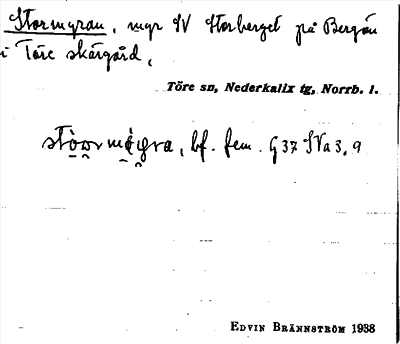 Stormyran, myr SV Storberget på Bergön
i Töre skärgård.
Töre sn, Nederkalix tg, Norrb. l.
bf. fem. G 37 SVa 3, 9
EDVIN BRÄNNSTRÖM 1938